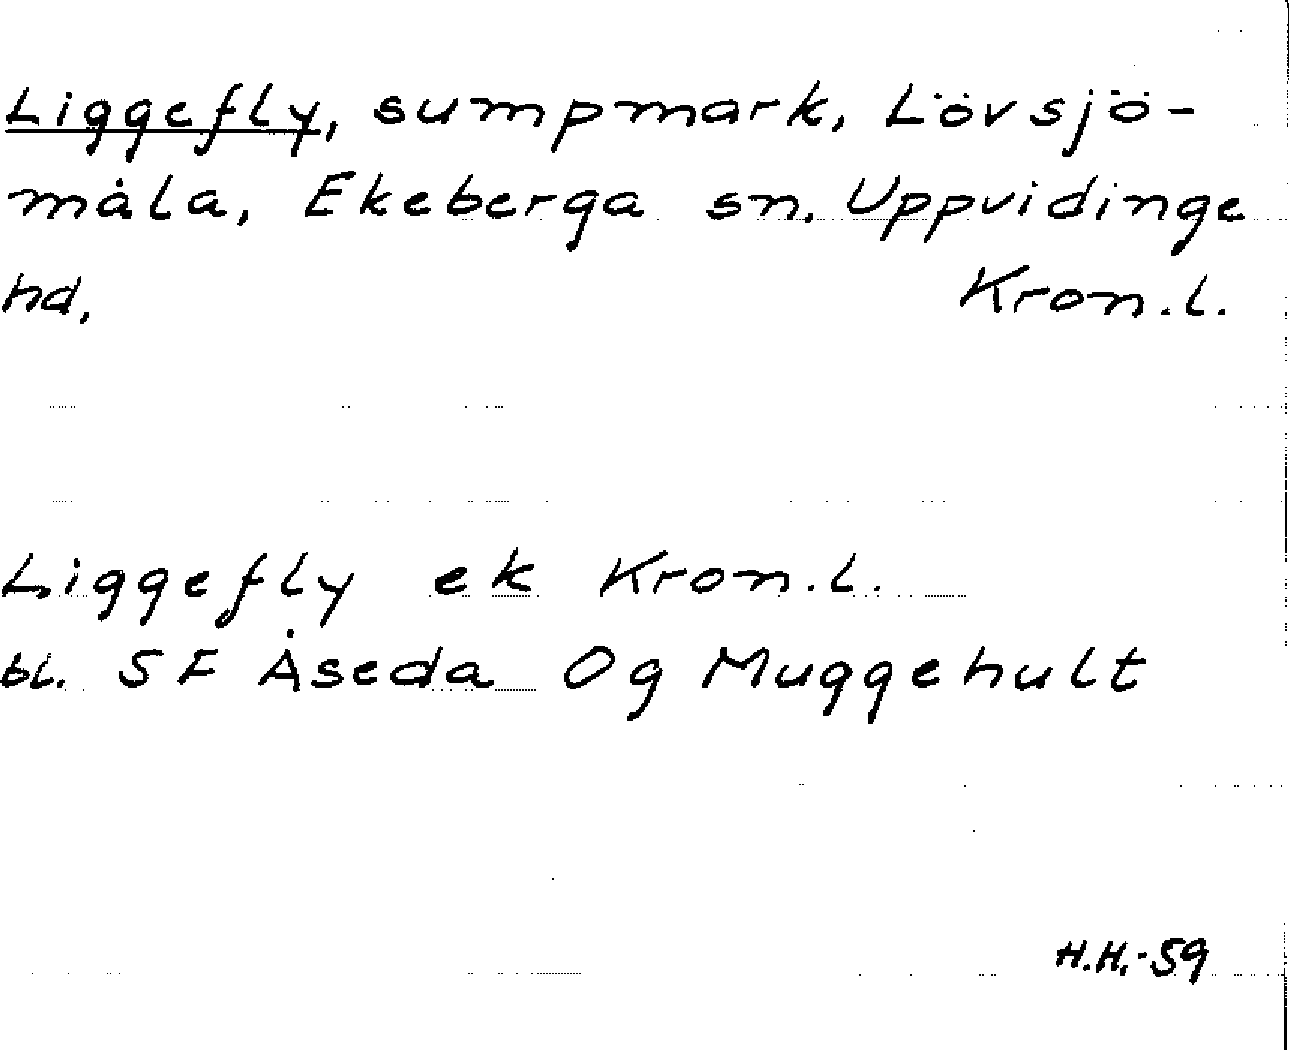 Liggefly, sumpmark, Lövsjö-
måla, Ekeberga sn. Uppvidinge
hd, Kron.l.
Liggefly ek Kron.l.
bl. SF Åseda Og Muggehult
H.H.-59